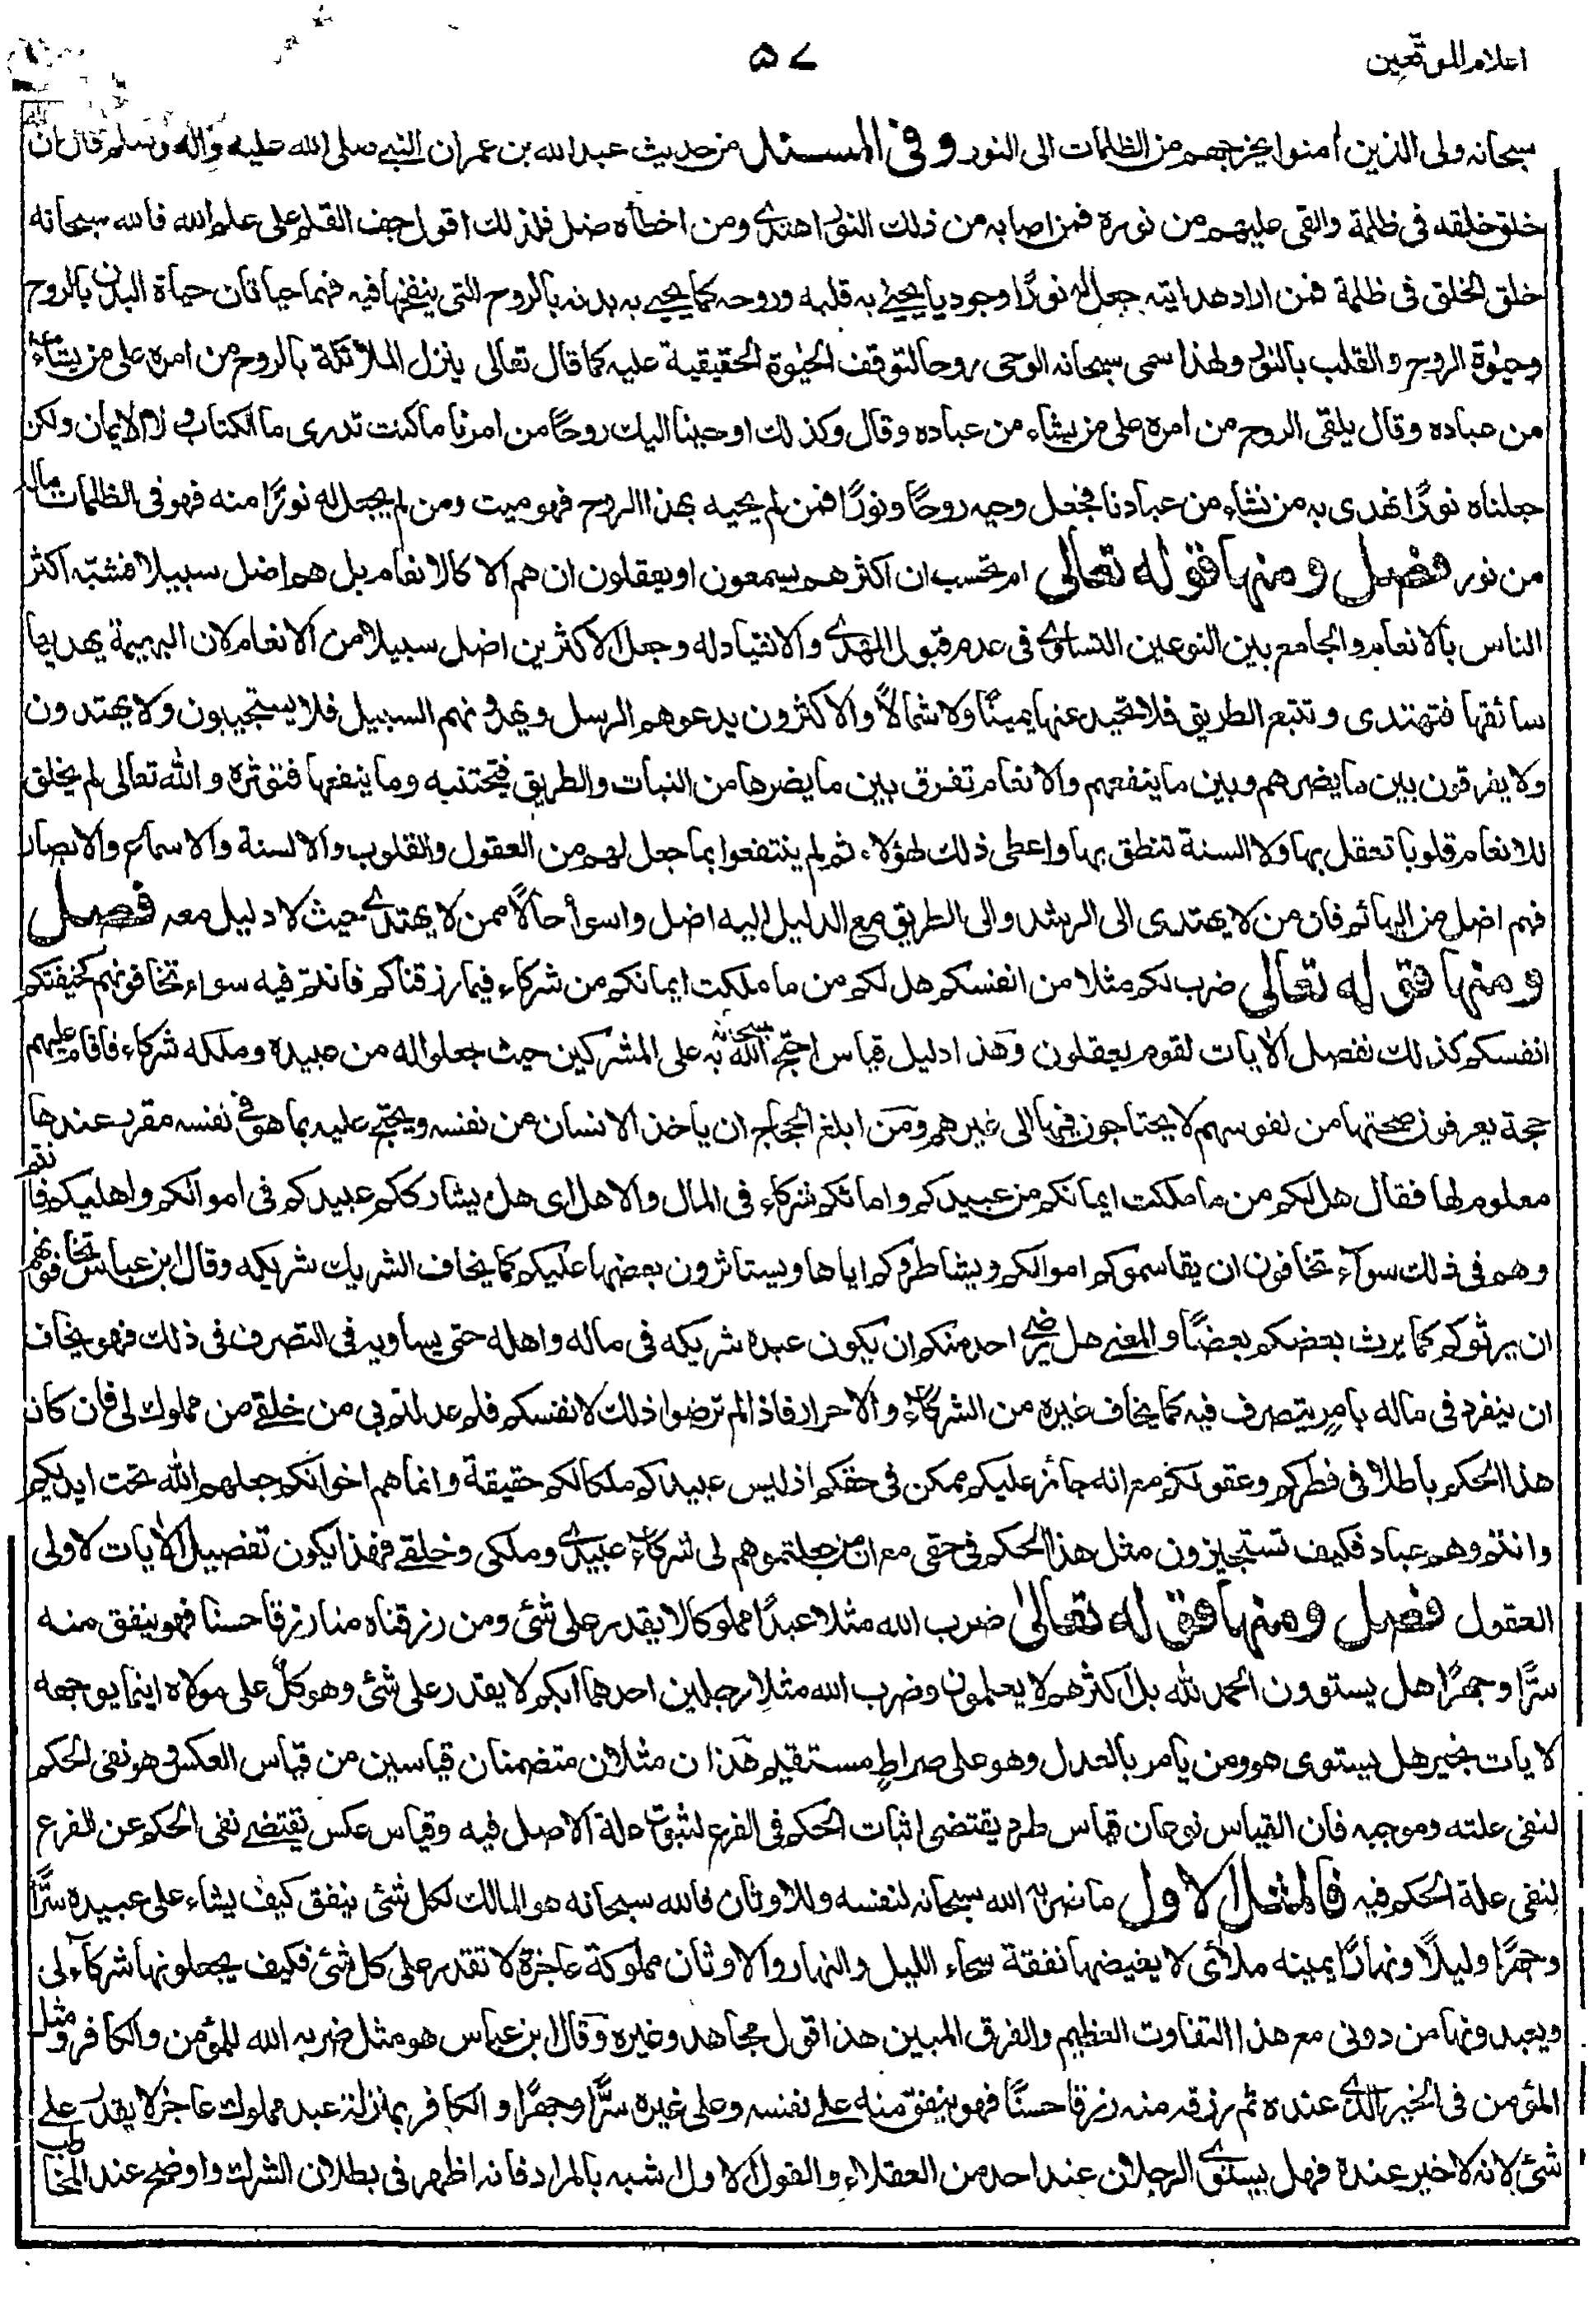 اعلام الموقعين
۵۷
سبحانه ولى الذين أمنوا يخرجهم من الظلمات الى النور وفى المسند من حديث عبد الله بن عمران النبي صلى الله عليه وآله وسلم قال ان
خلق خلقه فى ظلمة والقى عليهم من نوره فمن اصابه من ذلك النور اهتدى ومن اخطأه ضل فلذلك اقول جف القلم على علم الله فالله سبحانه
خلق الخلق فى ظلمة فمن اراد هدايته جعل له نورًا وجوديا يحيي به قلبه وروحه كما يحيي به بدنه بالروح التى ينفخها فيه فهما حياتان حياة البدن بالروح
وحيٰوة الروح والقلب بالنور ولهذا سمى سبحانه الوحى روحا لتوقف الحيٰوة الحقيقية عليه كما قال تعالى ينزل الملائكة بالروح من امره على من يشاء
من عباده وقال يلقى الروح من امره على من يشاء من عباده وقال وكذلك اوحينا اليك روحًا من امرنا ما كنت تدرى ما الكتاب ولا الايمان ولكن
جعلناه نورًا نهدى به من نشاء من عبادنا فجعل وحيه روحًا ونورًا فمن لم يحيه بهذا الروح فهو ميت ومن لم يجعل له نورًا منه فهو فى الظلمات ماله
من نور فصل ومنها قوله تعالى ام تحسب ان اكثرهم يسمعون او يعقلون ان هم الا كالانعام بل هم اضل سبيلا فشبّه اكثر
الناس بالانعام والجامع بين النوعين التساوى فى عدم قبول الهدى والانقياد له وجعل الاكثرين اضل سبيلا من الانعام لان البهيمة يهديها
سائقها فتهتدى وتتبع الطريق فلا تحيد عنها يمينًا ولا شمالًا والاكثرون يدعوهم الرسل ويهدونهم السبيل فلا يستجيبون ولا يهتدون
ولا يفرقون بين ما يضرهم وبين ما ينفعهم والانعام تفرق بين ما يضرها من النبات والطريق فتجتنبه وما ينفعها فتوثره والله تعالى لم يخلق
للانعام قلوبا تعقل بها ولا السنة تنطق بها واعطى ذلك لهؤلاء ثم لم ينتفعوا بما جعل لهم من العقول والقلوب والالسنة والاسماع والابصار
فهم اضل من البهائم فان من لا يهتدى الى الرشد والى الطريق مع الدليل اليه اضل واسوأ حالًا ممن لا يهتدى حيث لا دليل معه فصل
ومنها قوله تعالى ضرب لكم مثلا من انفسكم هل لكم من ما ملكت ايمانكم من شركاء فيما رزقناكم فانتم فيه سواء تخافونهم كخيفتكم
انفسكم كذلك نفصل الأيات لقوم يعقلون وهذا دليل قياس احتج الله سبحانه به على المشركين حيث جعلوا له من عبيده وملكه شركاء فاقام عليهم
حجة يعرفون صحتها من نفوسهم لا يحتاجون فيها الى غيرهم ومن ابلغ الحجاج ان ياخذ الانسان من نفسه ويحتج عليه بما هو فى نفسه مقرر عندها
معلوم لها فقال هل لكم من ما ملكت ايمانكم من عبيدكم وامائكم شركاء فى المال والاهل اى هل يشارككم عبيدكم فى اموالكم واهليكم فانتم
وهم فى ذلك سوآء تخافون ان يقاسموكم اموالكم ويشاطروكم اياها ويستاثرون ببعضها عليكم كما يخاف الشريك شريكه وقال ابن عباس تخافونهم
ان يرثوكم كما يرث بعضكم بعضًا والمعنى هل يرضى احد منكم ان يكون عبده شريكه فى ماله واهله حتى يساويه فى التصرف فى ذلك فهو يخاف
ان ينفرد فى ماله بامرٍ يتصرف فيه كما يخاف غيره من الشركاء والاحرار فاذا لم ترضوا ذلك لانفسكم فلم عدلتم بى من خلقى من مملوك لى فان كان
هذا الحكم باطلا فى فطركم وعقولكم مع انه جائز عليكم ممكن فى حقكم اذ ليس عبيدكم ملكا لكم حقيقة وانما هم اخوانكم جعلهم الله تحت ايديكم
وانتم وهم عباد فكيف تستجيزون مثل هذا الحكم فى حقى مع ان من جعلتموهم لى شركاء عبيدى وملكى وخلقى فهذا يكون تفصيل الأيات لاولى
العقول فصل ومنها قوله تعالىٰ ضرب الله مثلا عبدًا مملوكا لا يقدر على شئى ومن رزقناه منا رزقا حسنا فهو ينفق منه
سرًّا وجهرًا هل يستوون الحمد لله بل اكثرهم لا يعلمون وضرب الله مثلا رجلين احدهما ابكم لا يقدر على شئى وهو كلٌ على مولاه اينما يوجهه
لا يات بخير هل يستوى هو ومن يامر بالعدل وهو على صراطٍ مستقيم هذان مثلان متضمنان قياسين من قياس العكس وهو نفى الحكم
لنفى علته وموجبه فان القياس نوعان قياس طرد يقتضى اثبات الحكم فى الفرع لثبوت علة الاصل فيه وقياس عكس يقتضى نفى الحكم عن الفرع
لنفى علة الحكم فيه فالمثل الاول ما ضربه الله سبحانه لنفسه وللاوثان فالله سبحانه هو المالك لكل شئى ينفق كيف يشاء على عبيده سرًّا
وجهرًا وليلًا ونهارًا يمينه ملأى لا يغيضها نفقة سحاء الليل والنهار والاوثان مملوكة عاجزة لا تقدر على كل شئى فكيف يجعلونها شركاء لى
ويعبدونها من دونى مع هذا التفاوت العظيم والفرق المبين هذا قول مجاهد وغيره وقال ابن عباس هو مثل ضربه الله للمؤمن والكافر ومثل
المؤمن فى الخير الذى عنده ثم رزقه منه رزقا حسنًا فهو ينفق منه على نفسه وعلى غيره سرًّا وجهرًا والكافر بمنزلة عبد مملوك عاجز لا يقدر على
شئى لانه لا خير عنده فهل يستوى الرجلان عند احد من العقلاء والقول الاول اشبه بالمراد فانه اظهر فى بطلان الشرك واوضح عند المخاطب